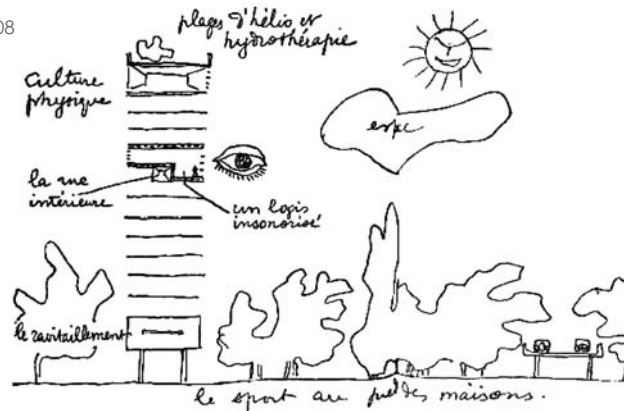 08
plages d'hélio et
hydrothérapie
culture
physique
la rue
intérieure
un logis
insonorisé
le ravitaillement
le sport au pied des maisons.